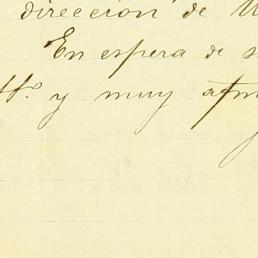 dirección de
En espera de
Att.º y muy afm